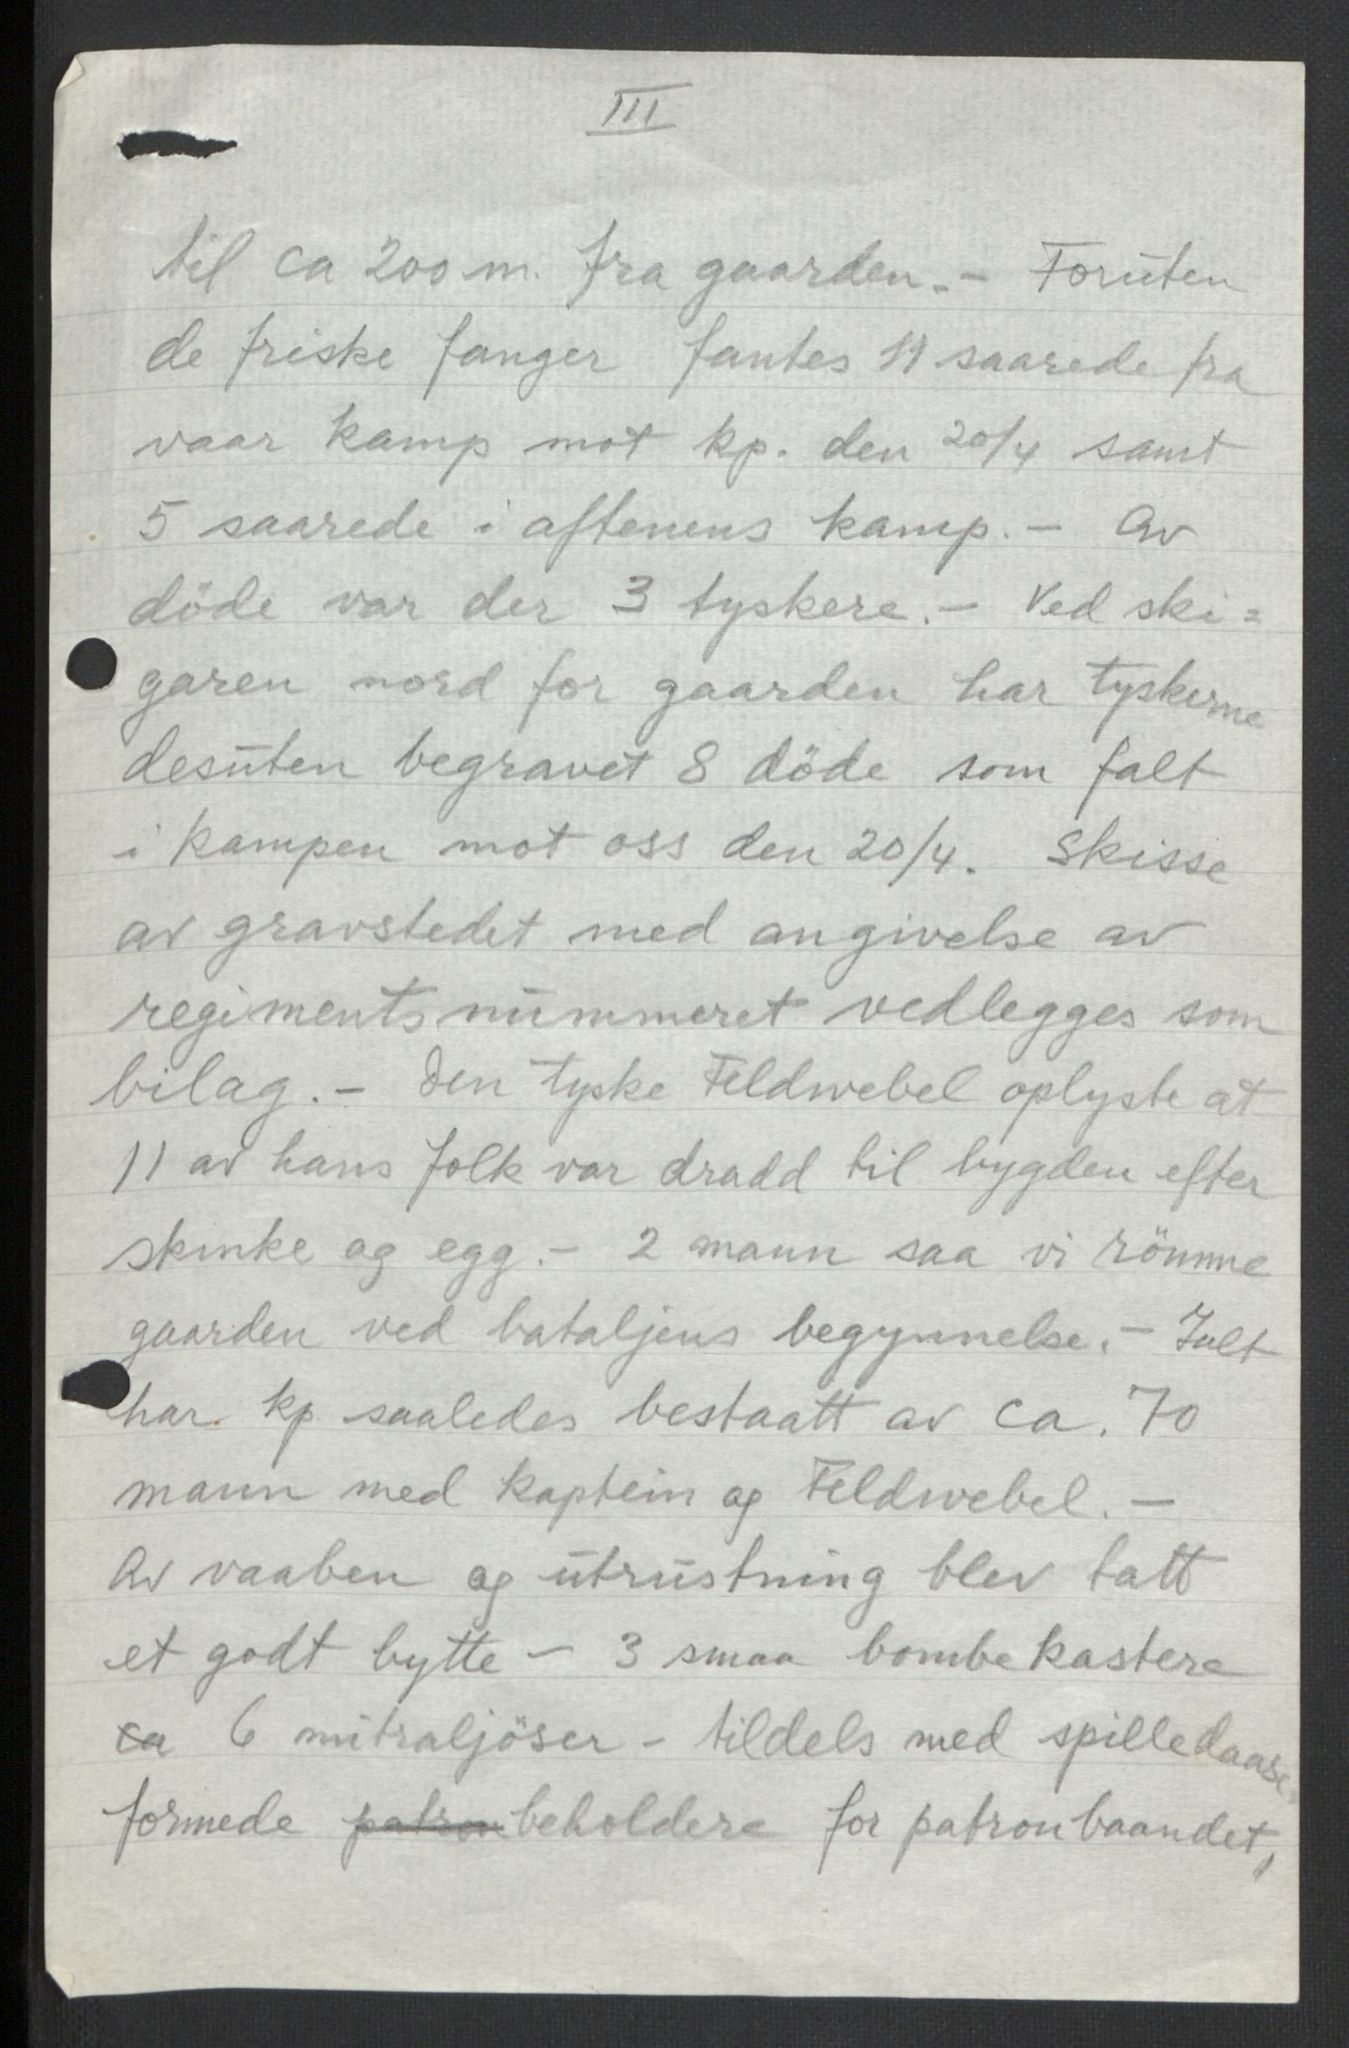 III
til ca 200 m. fra gaarden. – Foruten
de friske fanger fantes 11 saarede fra
vaar kamp mot kp. den 20/4 samt
5 saarede i aftenens kamp. – Av
döde var der 3 tyskere. – Ved ski=
garen nord for gaarden har tyskerne
desuten begravet 8 döde som falt
i kampen mot oss den 20/4. Skisse
av gravstedet med angivelse av
regimentsnummeret vedlegges som
bilag. – Den tyske Feldwebel oplyste at
11 av hans folk var dradd til bygden efter
skinke og egg. – 2 mann saa vi römme
gaarden ved bataljens begynnelse. – Ialt
har kp saaledes bestaatt av ca. 70
mann med kaptein og Feldwebel. –
Av vaaben og utrustning blev tatt
et godt bytte – 3 smaa bombekastere
ca 6 mitraljöser – tildels med spilledaase-
formede patronbeholdere for patronbaandet,